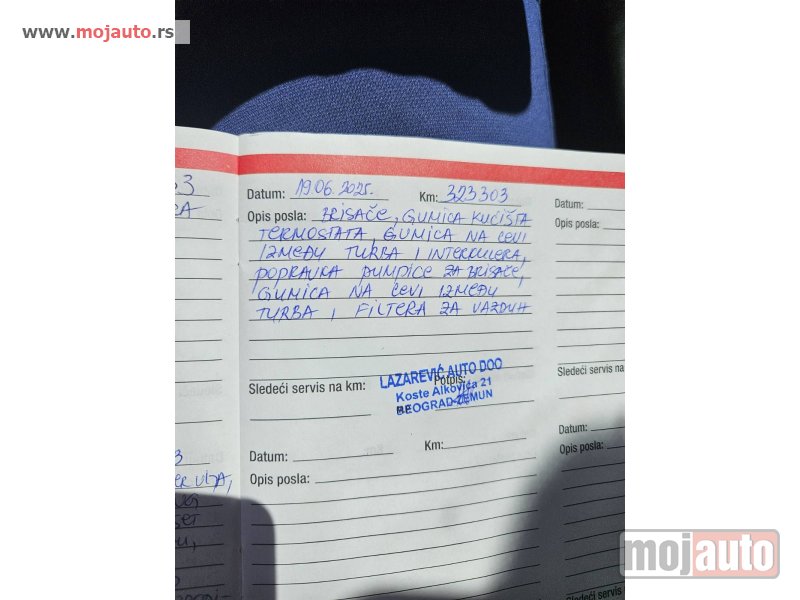 www.mojauto.rs
Datum: 19.06.2025. Km: 323303
Opis posla: BRISAČE, GUMICA KUĆIŠTA
TERMOSTATA, GUMICA NA CEVI
IZMEĐU TURBA I INTERKULERA,
POPRAVKA PUMPICE ZA BRISAČE,
GUMICA NA CEVI IZMEĐU
TURBA I FILTERA ZA VAZDUH
Sledeći servis na km: Potpis:
LAZAREVIĆ AUTO DOO
Koste Alkovića 21
BEOGRAD-ZEMUN
Datum: Km:
Opis posla:
3
Datum:
Opis posla:
Sledeći servis na
Datum:
Opis posla:
Sledeći servis
mojauto